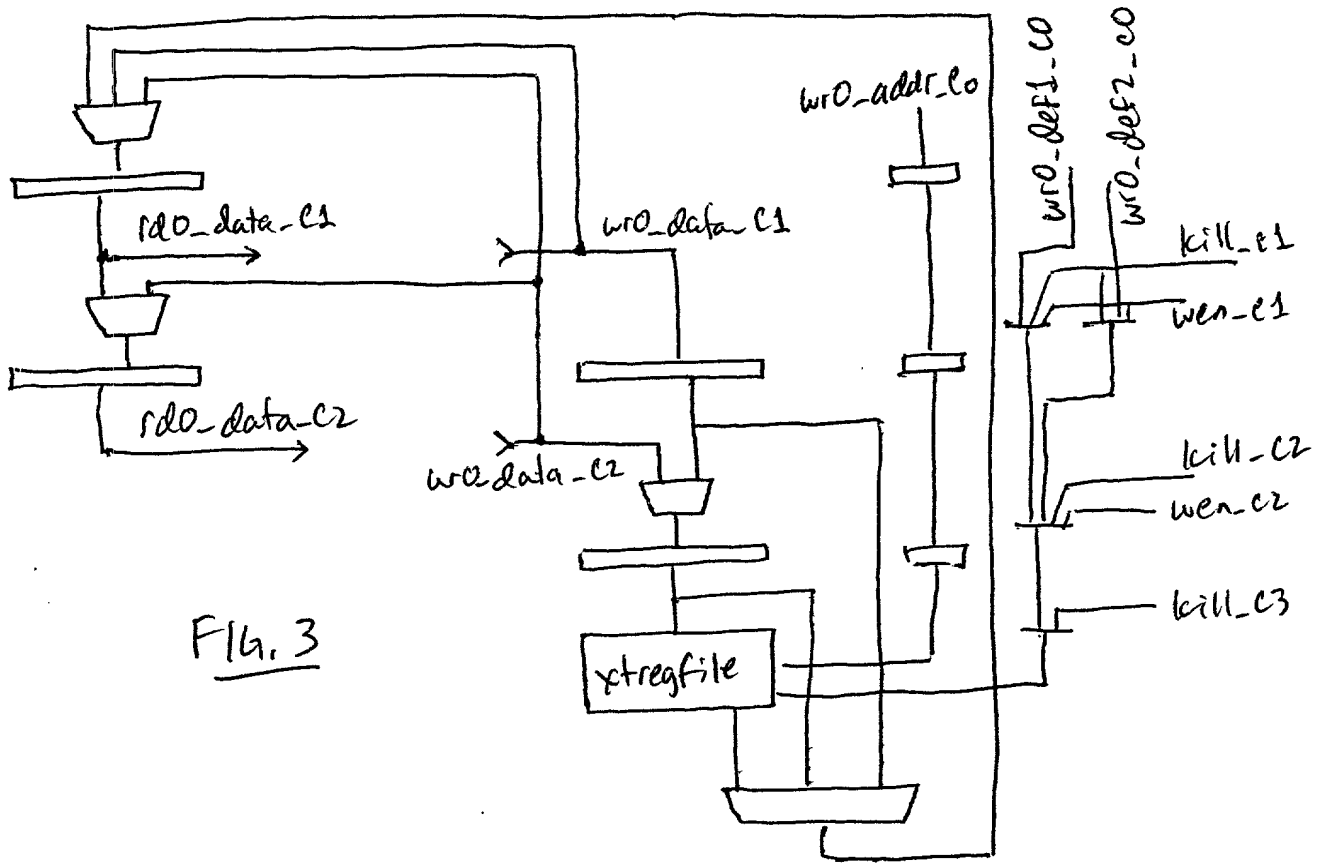 wr0_addr_C0
wr0_def1_C0
wr0_def2_C0
rd0_data_C1
wr0_data_C1
kill_C1
wen_C1
rd0_data_C2
wr0_data_C2
kill_C2
wen_C2
kill_C3
FIG. 3
xtregfile